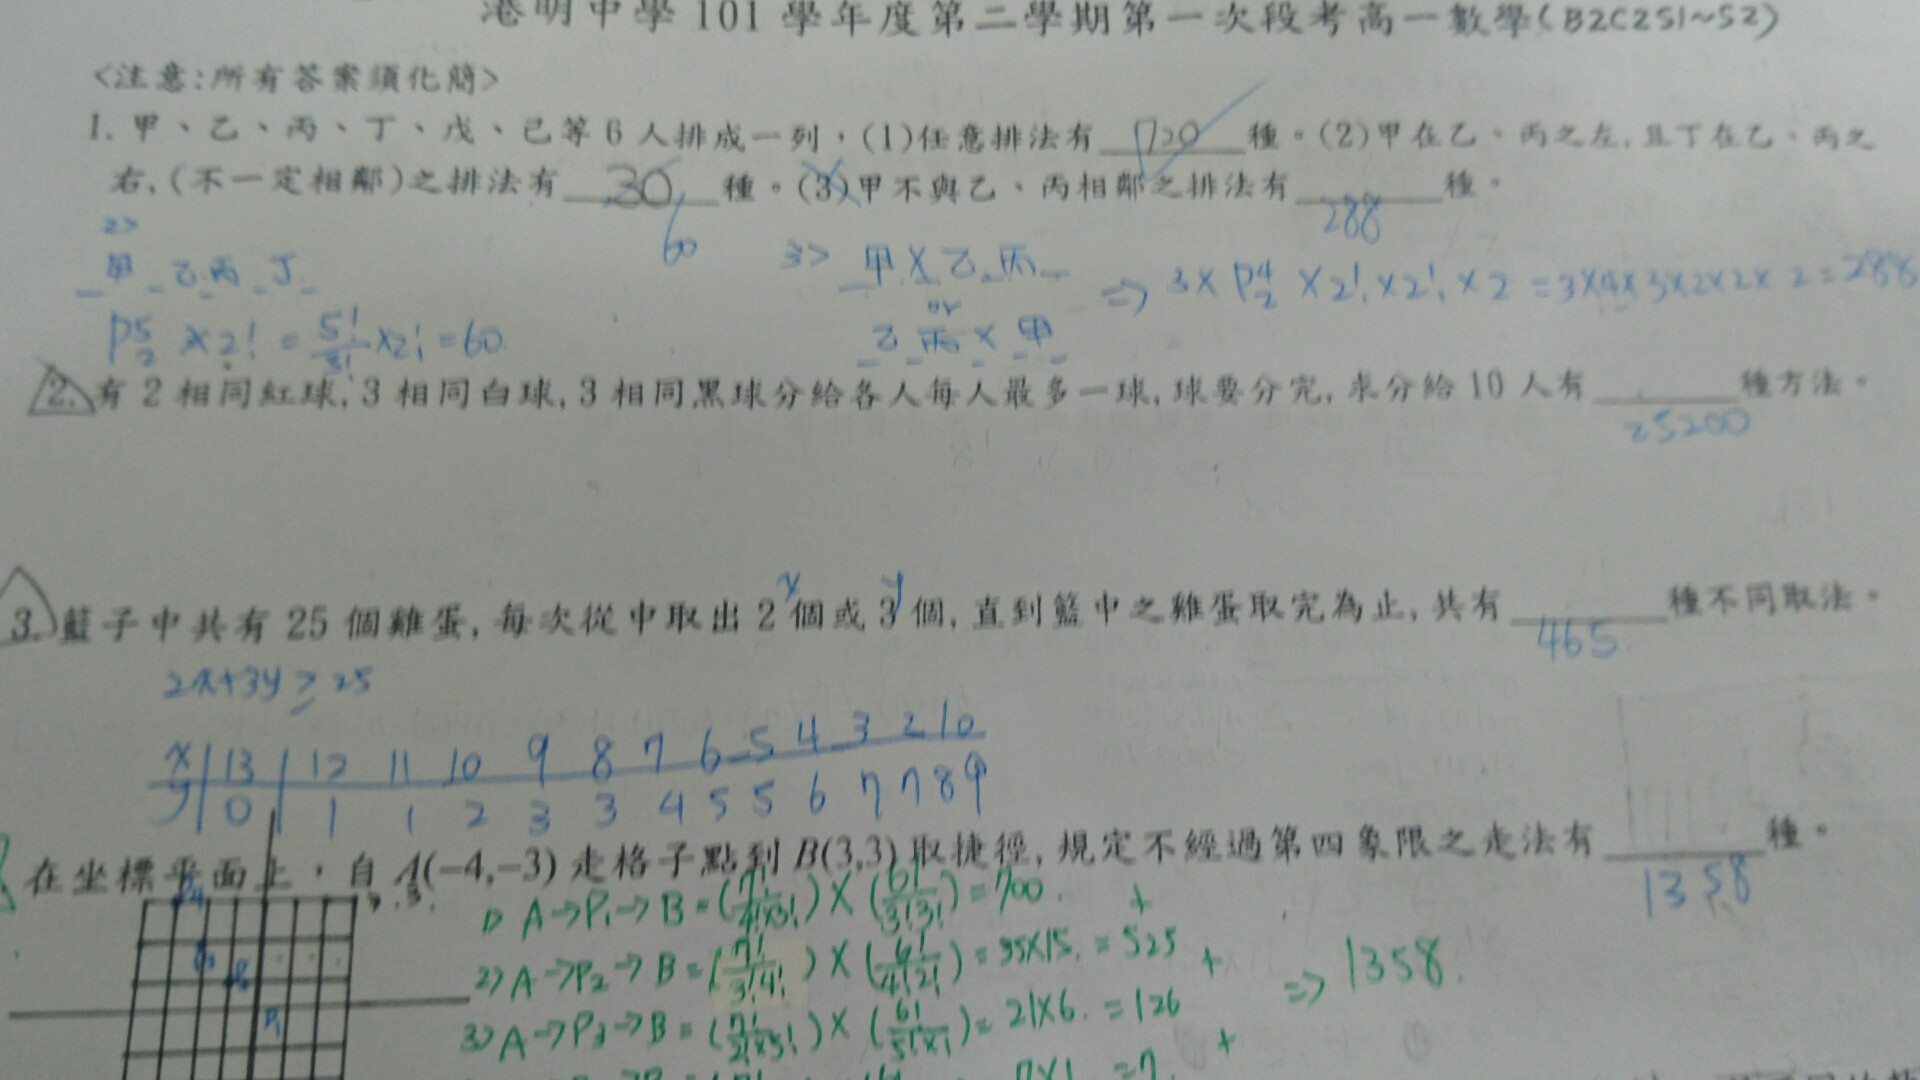 港明中學 101 學年度第二學期第一次段考高一數學(B2C2S1~S2)
<注意:所有答案須化簡>
1. 甲、乙、丙、丁、戊、己等 6 人排成一列，(1)任意排法有 720 種。(2)甲在乙、丙之左,且丁在乙、丙之
右,(不一定相鄰)之排法有 30 種。(3)甲不與乙、丙相鄰之排法有 288 種。
60
2> 甲 _ 乙 _ 丙 _ 丁 _
P⁵₂ × 2! = 5!/3! × 2! = 60
3> 甲 X 乙 丙
or
乙 丙 X 甲
⇒ 3 × P⁴₂ × 2! × 2! × 2 = 3×4×3×2×2×2 = 288
2. 有 2 相同紅球, 3 相同白球, 3 相同黑球分給各人每人最多一球, 球要分完, 求分給 10 人有 25200 種方法。
x y
3. 籃子中共有 25 個雞蛋, 每次從中取出 2 個或 3 個, 直到籃中之雞蛋取完為止, 共有 465 種不同取法。
2x+3y ≥ 25
x 13 12 11 10 9 8 7 6 5 4 3 2 1 0
y 0 1 1 2 3 3 4 5 5 6 7 7 8 9
在坐標平面上，自 A(−4,−3) 走格子點到 B(3,3) 取捷徑, 規定不經過第四象限之走法有 1358 種。
1) A→P₁→B = (7!/4!×3!) × (6!/3!3!) = 700. +
2) A→P₂→B = (7!/3!4!) × (6!/4!2!) = 35×15 = 525 +
3) A→P₃→B = (7!/2!×5!) × (6!/5!×1!) = 21×6 = 126 +
⇒ 1358.
7×1 = 7